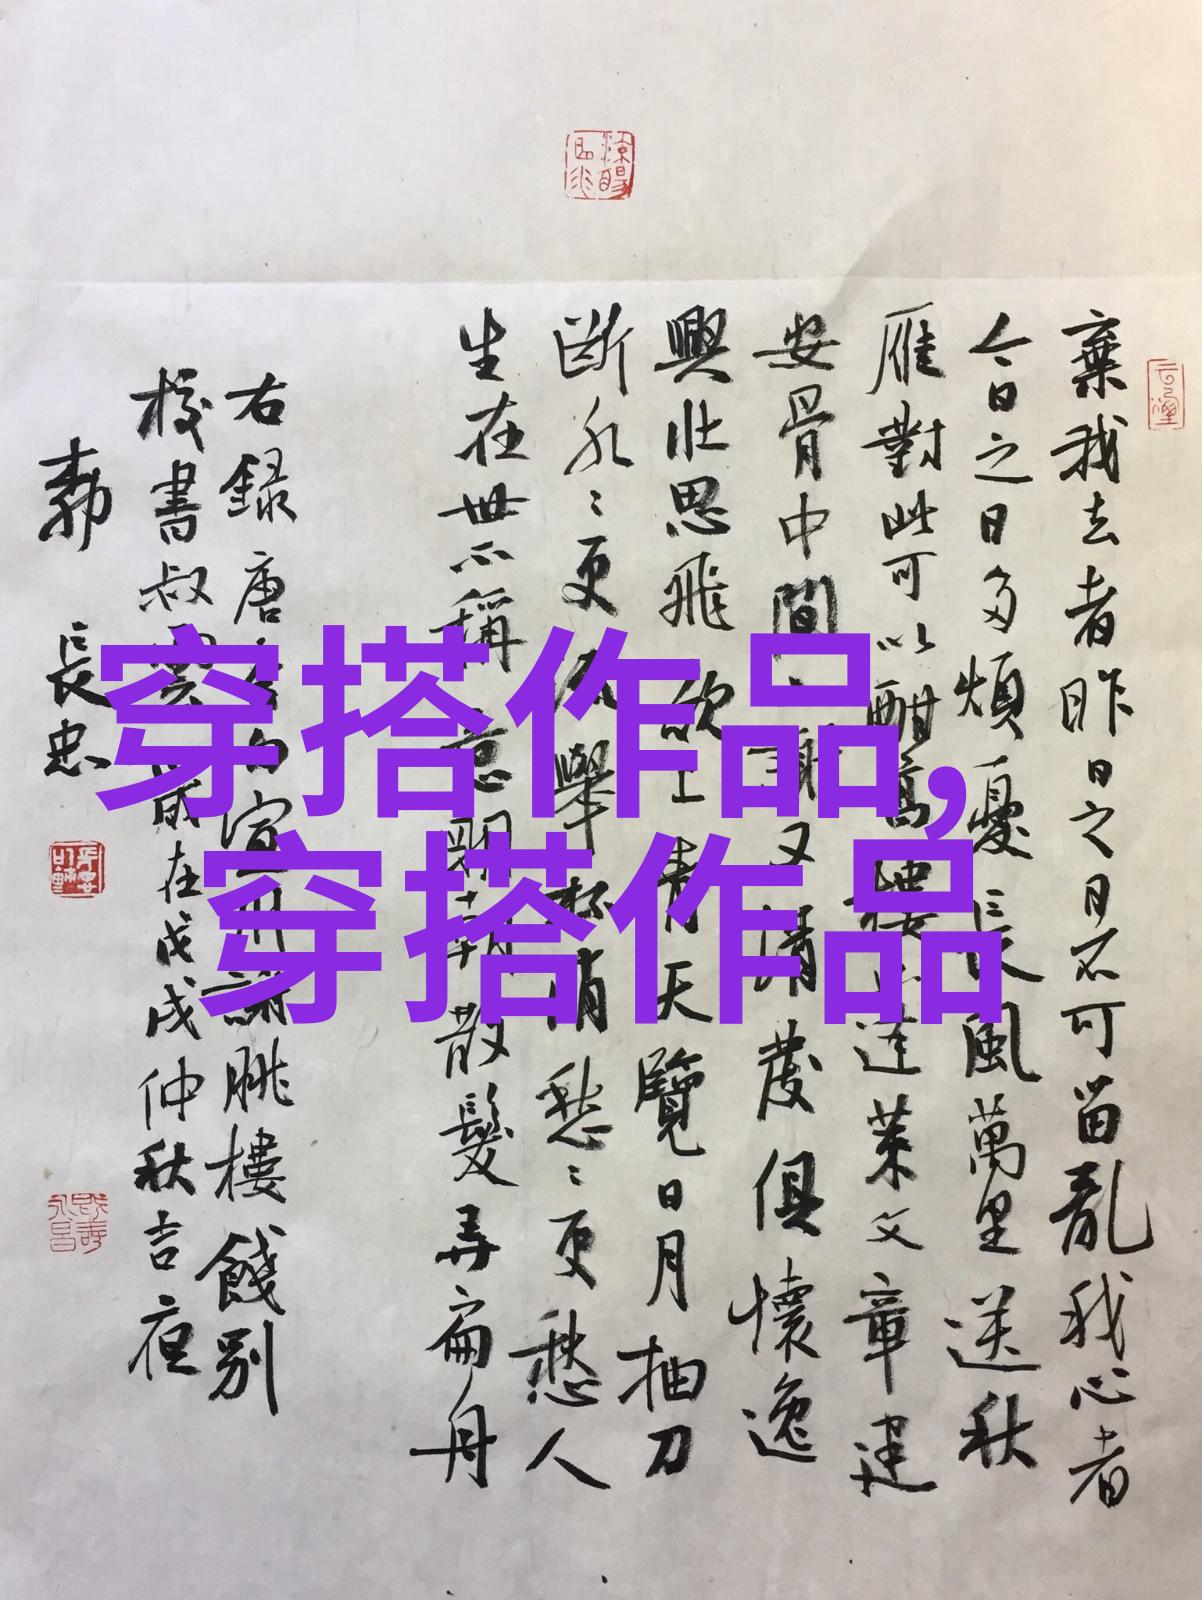 棄我去者昨日之日不可留亂我心者
今日之日多煩憂長風萬里送秋
雁對此可以酣高樓蓬萊文章建
安骨中間謝又清發俱懷逸
興壯思飛欲上青天覽日月抽刀
斷水〻更流舉杯消愁〻更愁人
生在世不稱意明朝散髮弄扁舟
右録唐白宣州謝朓樓餞別
校書叔雲歲在戊戌仲秋吉夜
郭長忠
穿搭作品,
穿搭作品